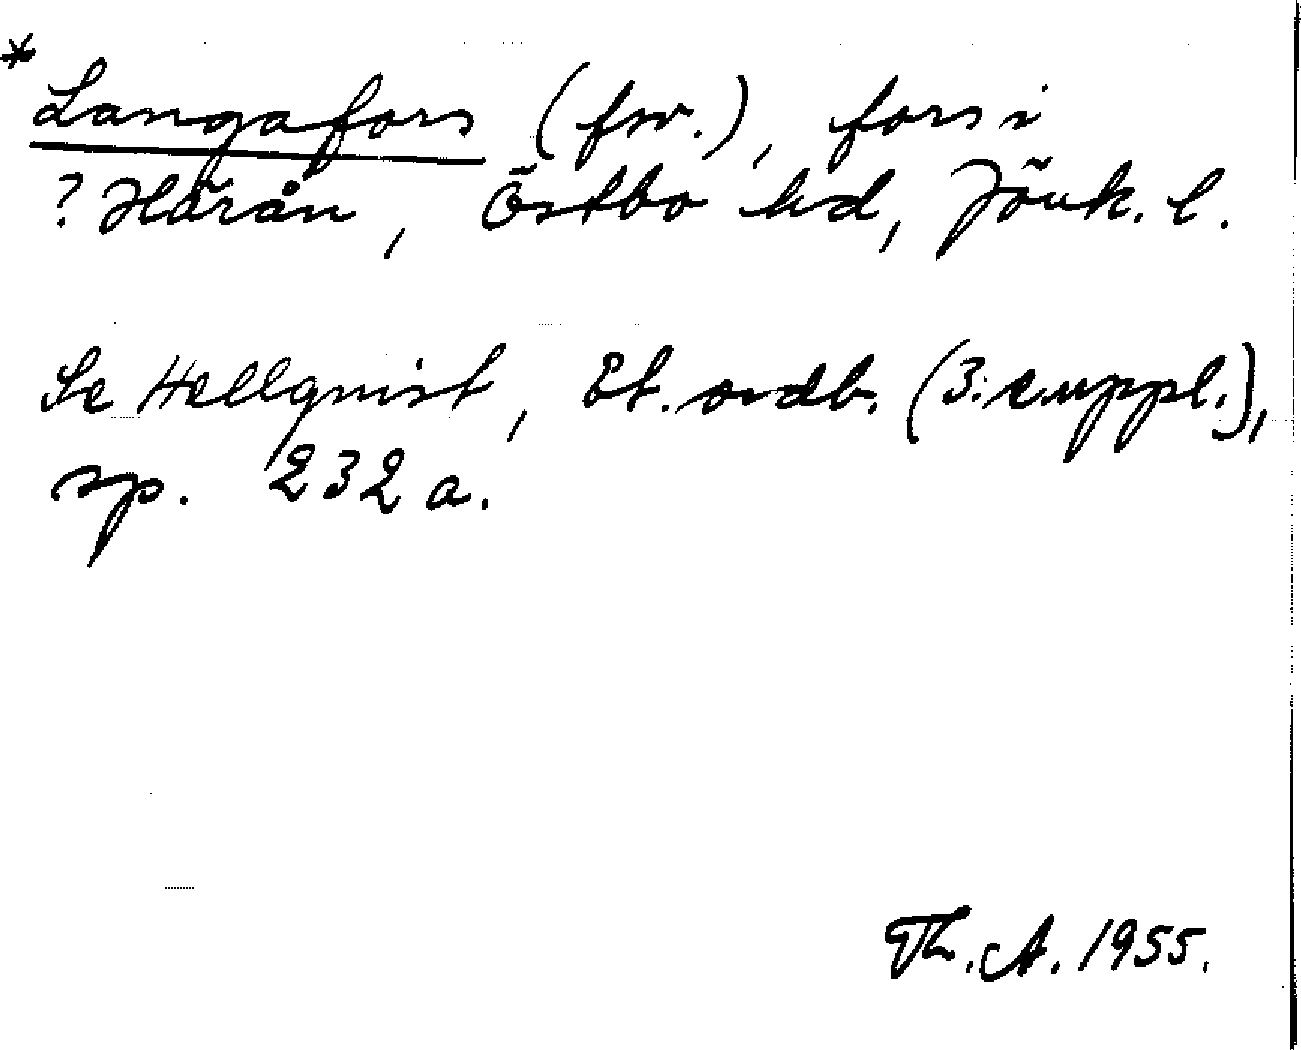 *
Langafors (fsv.), fors i
? Härån, Östbo hd, Jönk. l.
Se Hellquist, Et. ordb. (3:e uppl.),
sp. 232 a.
Th. A. 1955.